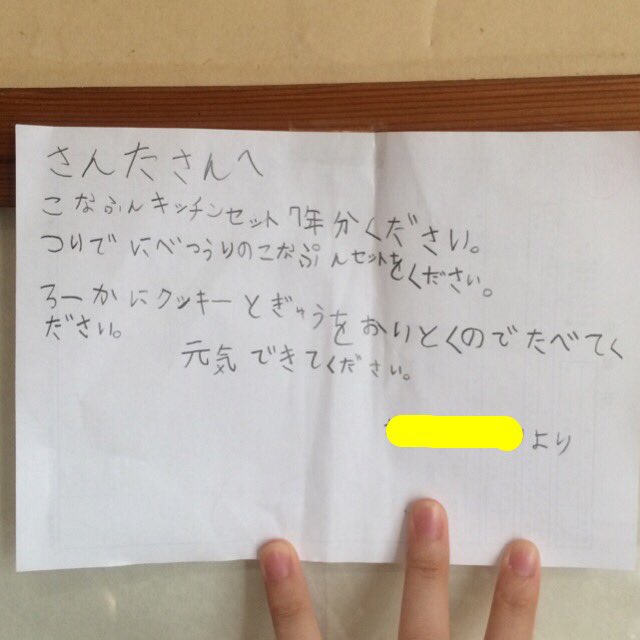 さんたさんへ
こなぷんキッチンセット7年分ください。
ついでにべつうりのこなぷんセットをください。
ろーかにクッキーとぎゅうをおいとくのでたべてく
ださい。
元気できてください。
より